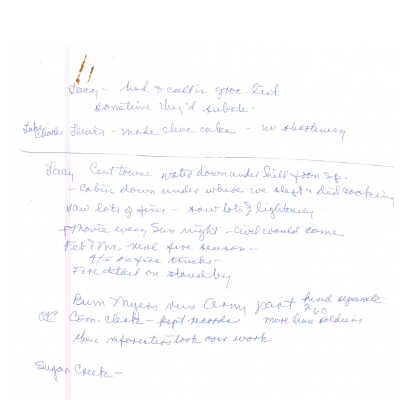 Lacy - had to call in groc. list
Sometime they'd subste.
Lake Charles Lewis - made choc cake - no shortening
Lacy Cent towne water down under hill from
- Cabin down under where we slept & did cooking
saw lots of fires - saw lots of lightening
- Movie every Sun night - Civil would come
Feb & Mr. - real fire season -
on fire trucks -
Fire detail on standby
Burn Myers run Army part fund separate
Com. clerk - kept records more here soldiers
260
then reforestation took over work
Sugar Creek -